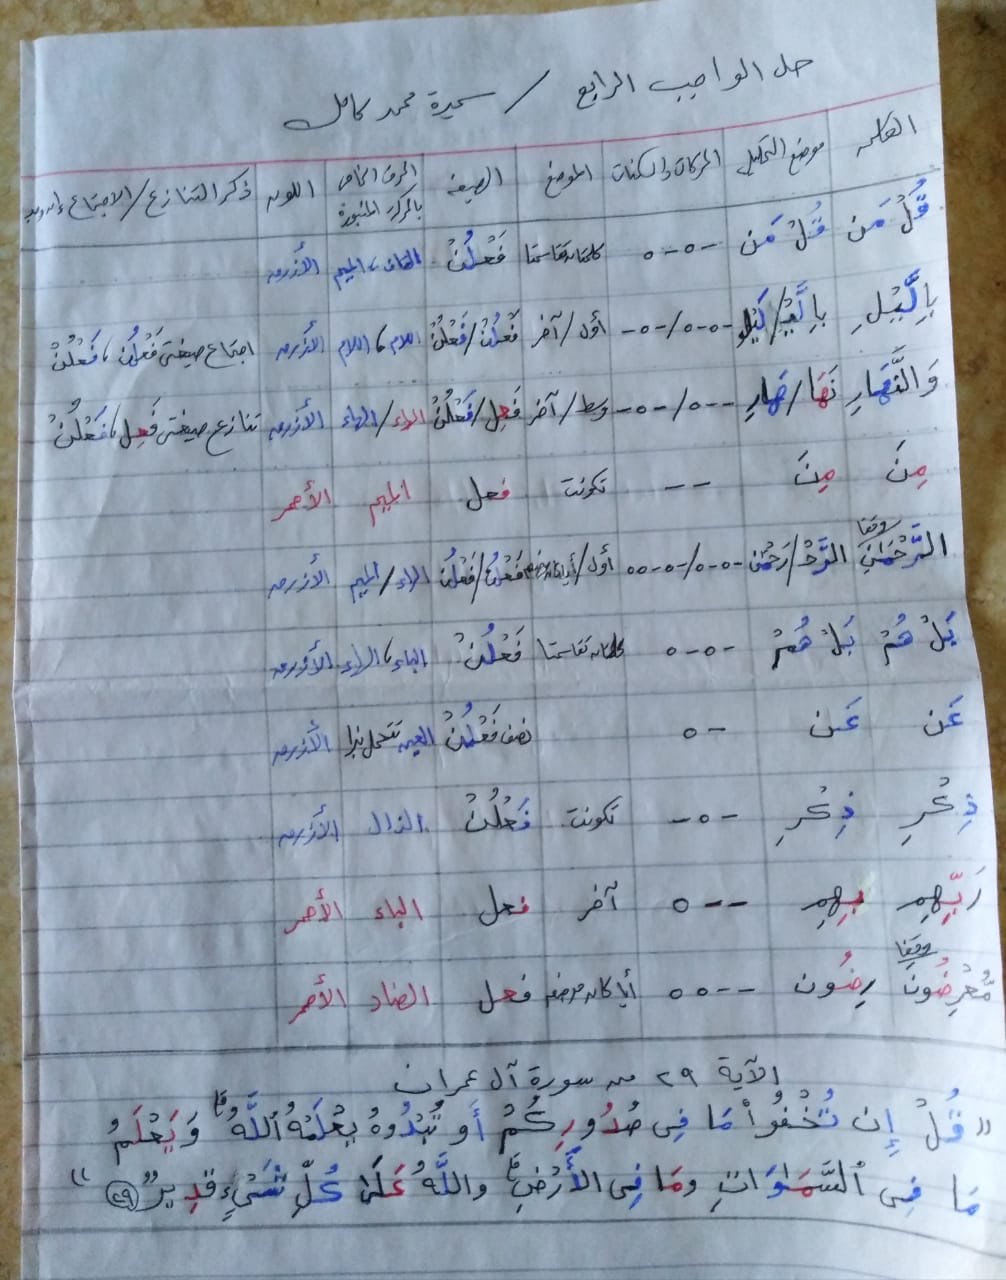 حل الواجب الرابع / سميرة محمد كامل
الكلمه موضع التحليل الحركات والسكنات الموضع الصيغه الحرف الخاص بالحركة المنبورة اللون ذكر التنازع / الاجتماع
قُلْ مَن قُلْ مَن -٥-٥ كلمتان تقاسمتا فَعْلُنْ القاف، الميم الأزرق
بِالَّيْلِ بِالَّيْ/لَيْلِ -٥-٥/-٥- أول/آخر فَعْلُنْ/فَعْلُنْ اللام، اللام الأزرق اجتماع صيغتى فَعْلُنْ، فَعْلُنْ
وَالنَّهَارِ نَهَا/هَارِ --٥/-٥- وسط/آخر فَعِل/فَعْلُنْ الهاء/الهاء الأزرق تنازع صيغتى فَعِل، فَعْلُنْ
مِنَ مِنَ -- تكونت فعل الميم الأحمر
الرَّحْمَٰنِ وقفا الرَّحْ/رَحْمَٰن -٥-٥/-٥-٥٥ أول/أيا كان موضعه فَعْلُنْ/فَعْلُنْ الراء/الميم الأزرق
بَلْ هُمْ بَلْ هُمْ -٥-٥ كلمتان تقاسمتا فَعْلُنْ الباء، الهاء الأزرق
عَن عَن -٥ نصف فَعْلُنْ العين تتحمل نبرا الأزرق
ذِكْرِ ذِكْرِ -٥- تكونت فَعْلُنْ الذال الأزرق
رَبِّهِم بِهِم --٥ آخر فعل الباء الأحمر
مُّعْرِضُونَ وقفا رِضُون --٥٥ أيا كان موضعه فعل الضاد الأحمر
الآية ٢٩ من سورة آل عمران
" قُلْ إِن تُخْفُواْ مَا فِى صُدُورِكُمْ أَو تُبْدُوهُ يَعْلَمْهُ ٱللَّهُ ۗ وَيَعْلَمُ
مَا فِى ٱلسَّمَاوَاتِ وَمَا فِى الأَرْضِ ۗ واللَّهُ عَلَىٰ كُلِّ شَىْءٍ قَدِيرٌ (٢٩) "